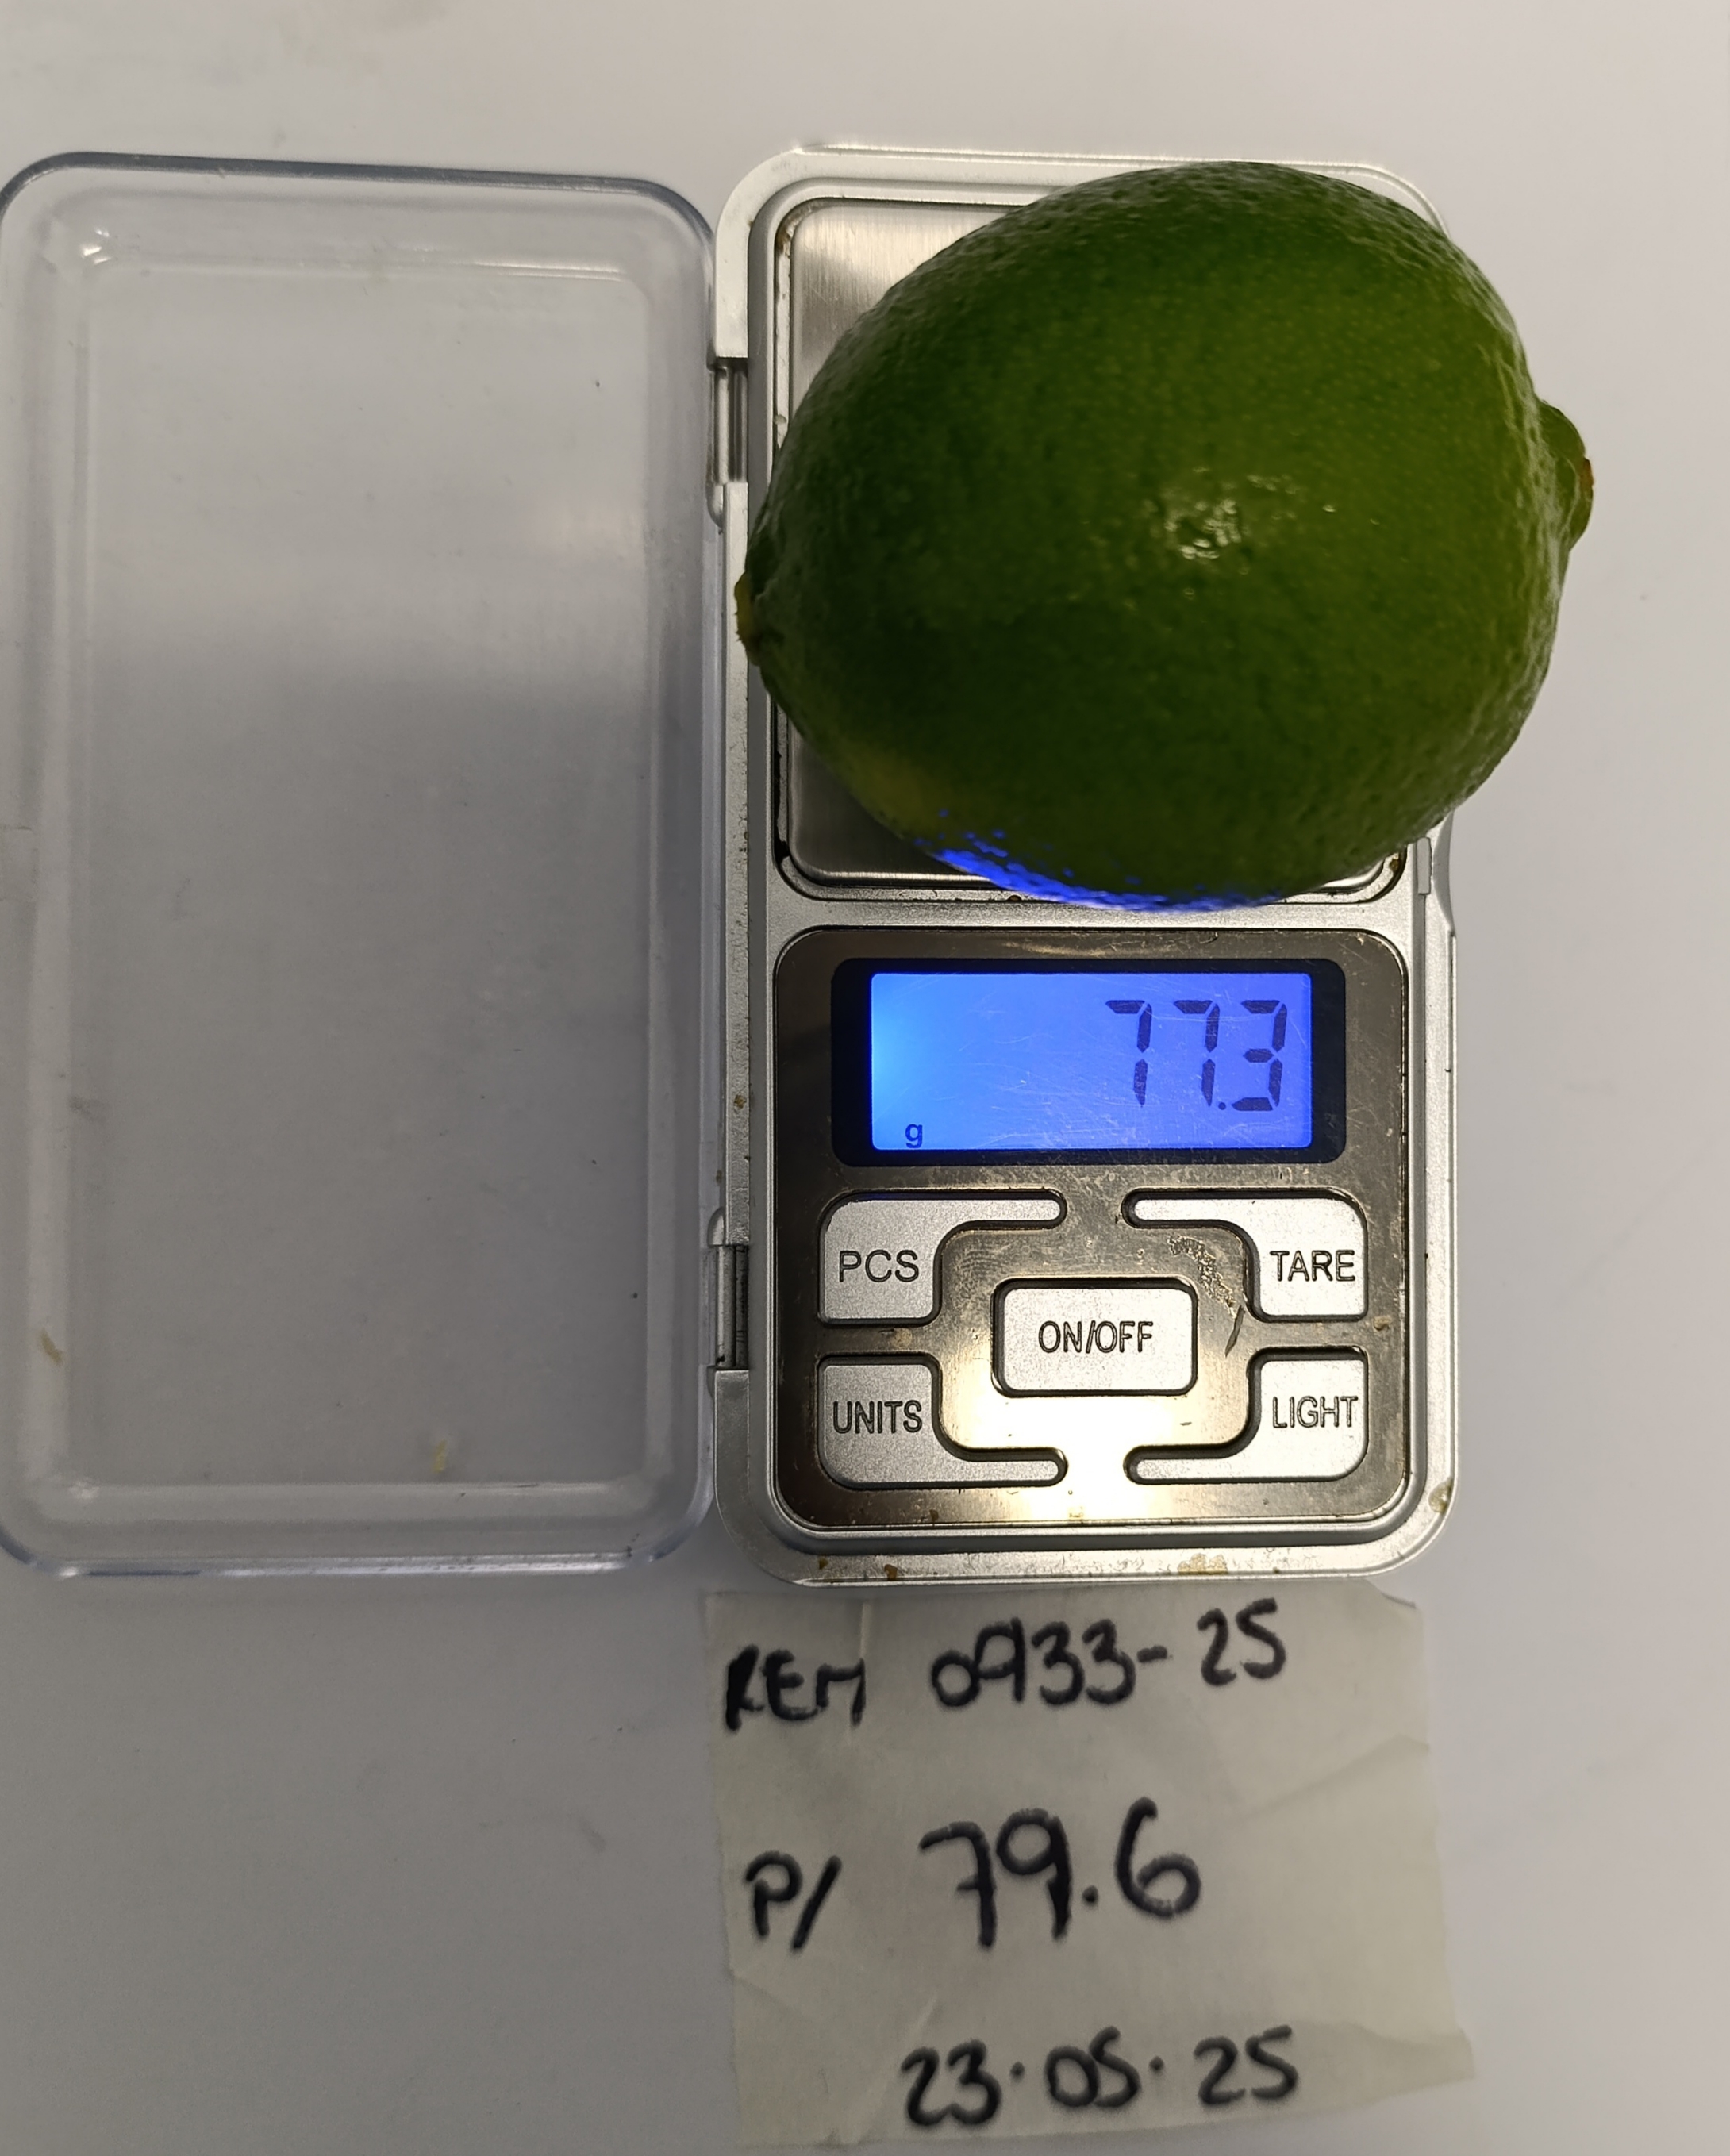 77.3
g
PCS
TARE
ON/OFF
UNITS
LIGHT
REM 0933-25
P/ 79.6
23.05.25